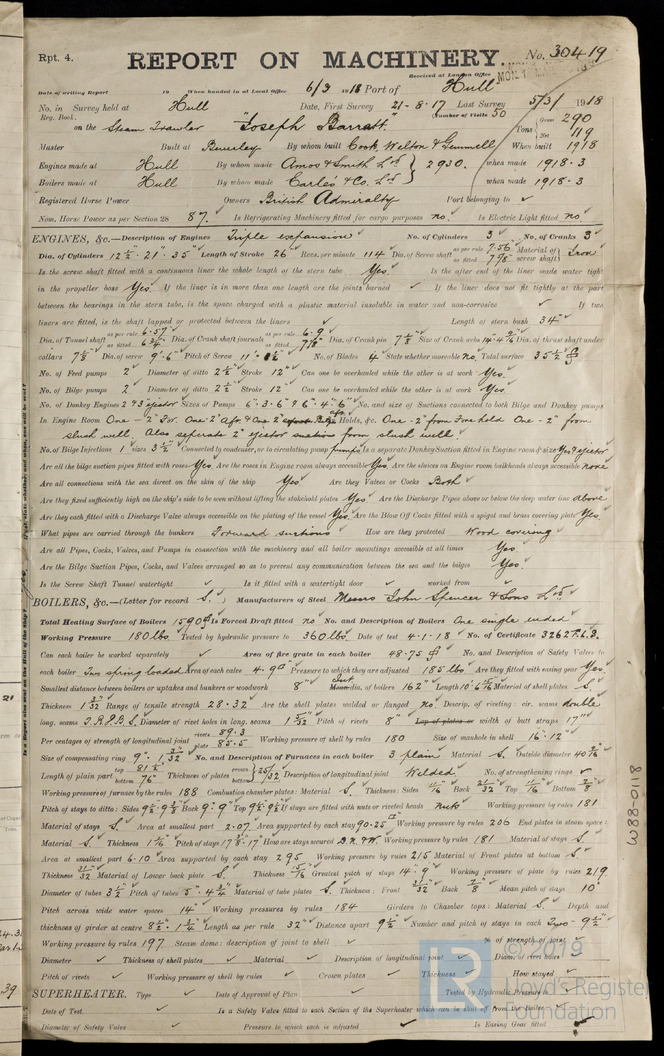 Rpt. 4.
REPORT ON MACHINERY.
No. 30419
Received at London Office
Date of writing Report 19 When handed in at Local Office 6/3 1918 Port of Hull
No. in Survey held at Hull Date, First Survey 21-8-17 Last Survey 5/3/ 1918
Reg. Book. (Number of Visits 50
on the Steam Trawler "Joseph Barratt" Tons Gross 290 Net 119
Master Built at Beverley By whom built Cook Welton & Gemmell When built 1918
Engines made at Hull By whom made Amos & Smith Ld 2930. when made 1918-3
Boilers made at Hull By whom made Earle's & Co. Ld when made 1918-3
Registered Horse Power Owners British Admiralty Port belonging to
Nom. Horse Power as per Section 28 87. Is Refrigerating Machinery fitted for cargo purposes no. Is Electric Light fitted no
ENGINES, &c.—Description of Engines Triple expansion No. of Cylinders 3 No. of Cranks 3
Dia. of Cylinders 12½"-21-35" Length of Stroke 26" Revs. per minute 114 Dia. of Screw shaft as per rule 7.56" as fitted 7⅞" Material of screw shaft Iron
Is the screw shaft fitted with a continuous liner the whole length of the stern tube Yes. Is the after end of the liner made water tight
in the propeller boss Yes. If the liner is in more than one length are the joints burned If the liner does not fit tightly at the part
between the bearings in the stern tube, is the space charged with a plastic material insoluble in water and non-corrosive If two
liners are fitted, is the shaft lapped or protected between the liners Length of stern bush 34"
Dia. of Tunnel shaft as per rule 6.57" as fitted 6¾" Dia. of Crank shaft journals as per rule 6.9" as fitted 7⅛" Dia. of Crank pin 7⅛" Size of Crank webs Dia. of thrust shaft under
collars 7⅛" Dia. of screw 9'-6" Pitch of Screw No. of Blades 4 State whether moveable no. Total surface 35½ sq ft
No. of Feed pumps 2 Diameter of ditto 2½" Stroke 12" Can one be overhauled while the other is at work Yes.
No. of Bilge pumps 2 Diameter of ditto 2½" Stroke 12" Can one be overhauled while the other is at work Yes.
No. of Donkey Engines 2 & 3" ejector Sizes of Pumps 6"-3-6" & 6-4-6" No. and size of Suctions connected to both Bilge and Donkey pumps
In Engine Room One - 2" For. One-2" aft & One 2" In Holds, &c. One-2" from Fore hold One-2" from
slush well Also seperate 2" ejector suctions from slush well.
No. of Bilge Injections 1 sizes 3½" Connected to condenser, or to circulating pump pump Is a separate Donkey Suction fitted in Engine room & size Yes & ejector
Are all the bilge suction pipes fitted with roses Yes. Are the roses in Engine room always accessible Yes. Are the sluices on Engine room bulkheads always accessible none
Are all connections with the sea direct on the skin of the ship Yes Are they Valves or Cocks Both
Are they fixed sufficiently high on the ship's side to be seen without lifting the stokehold plates Yes Are the Discharge Pipes above or below the deep water line above
Are they each fitted with a Discharge Valve always accessible on the plating of the vessel Yes. Are the Blow Off Cocks fitted with a spigot and brass covering plate Yes.
What pipes are carried through the bunkers Forward suctions How are they protected Wood covering
Are all Pipes, Cocks, Valves, and Pumps in connection with the machinery and all boiler mountings accessible at all times Yes
Are the Bilge Suction Pipes, Cocks, and Valves arranged so as to prevent any communication between the sea and the bilges Yes.
Is the Screw Shaft Tunnel watertight Is it fitted with a watertight door worked from
BOILERS, &c.—(Letter for record S.) Manufacturers of Steel Messrs John Spencer & Sons Ld
Total Heating Surface of Boilers 1590 Is Forced Draft fitted no No. and Description of Boilers One single ended
Working Pressure 180 lbs. Tested by hydraulic pressure to 360 lbs. Date of test 4-1-18 No. of Certificate 3262
Can each boiler be worked separately Area of fire grate in each boiler 48.75 No. and Description of Safety Valves to
each boiler Two spring loaded Area of each valve 4.9 Pressure to which they are adjusted 185 lbs Are they fitted with easing gear Yes.
Smallest distance between boilers or uptakes and bunkers or woodwork 8" dia. of boilers 162" Length Material of shell plates S.
Thickness 1 3/32 Range of tensile strength 28-32 Are the shell plates welded or flanged no. Descrip. of riveting: cir. seams double
long. seams T.R.D.B.S. Diameter of rivet holes in long. seams 1 5/32 Pitch of rivets 8" Lap of plates or width of butt straps 17"
Per centages of strength of longitudinal joint rivets 89.3 plate 85.5 Working pressure of shell by rules 180 Size of manhole in shell 16"-12"
Size of compensating ring No. and Description of Furnaces in each boiler 3 plain Material S. Outside diameter
Length of plain part top bottom 76" Thickness of plates crown bottom 25/32 Description of longitudinal joint Welded No. of strengthening rings
Working pressure of furnace by the rules 188 Combustion chamber plates: Material S. Thickness: Sides Back 21/32 Top Bottom
Pitch of stays to ditto: Sides Back Top If stays are fitted with nuts or riveted heads Nuts Working pressure by rules 181
Material of stays S. Area at smallest part 2.07 Area supported by each stay 90.25 Working pressure by rules 206 End plates in steam space:
Material S. Thickness Pitch of stays How are stays secured D.N.&W. Working pressure by rules 181 Material of stays S.
Area at smallest part 6.10 Area supported by each stay 295 Working pressure by rules 215 Material of Front plates at bottom S.
Thickness 31/32 Material of Lower back plate S. Thickness Greatest pitch of stays Working pressure of plate by rules 219
Diameter of tubes 3½" Pitch of tubes Material of tube plates S. Thickness: Front 31/32 Back Mean pitch of stays 10"
Pitch across wide water spaces 14" Working pressures by rules 184 Girders to Chamber tops: Material S. Depth and
thickness of girder at centre Length as per rule 32" Distance apart 9½" Number and pitch of stays in each Two-9½"
Working pressure by rules 197 Steam dome: description of joint to shell % of strength of joint
Diameter Thickness of shell plates Material Description of longitudinal joint Diam. of rivet holes
Pitch of rivets Working pressure of shell by rules Crown plates Thickness How stayed
SUPERHEATER. Type Date of Approval of Plan Tested by Hydraulic Pressure to
Date of Test Is a Safety Valve fitted to each Section of the Superheater which can be shut off from the Boiler
Diameter of Safety Valve Pressure to which each is adjusted Is Easing Gear fitted
W88-0118
© 2019
Lloyd's Register
Foundation